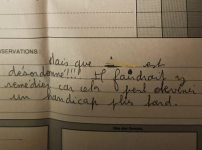 OBSERVATIONS :
Mais que est
désordonné!!!! Il faudrait y
remédier car cela peut devenir
un handicap plus tard.